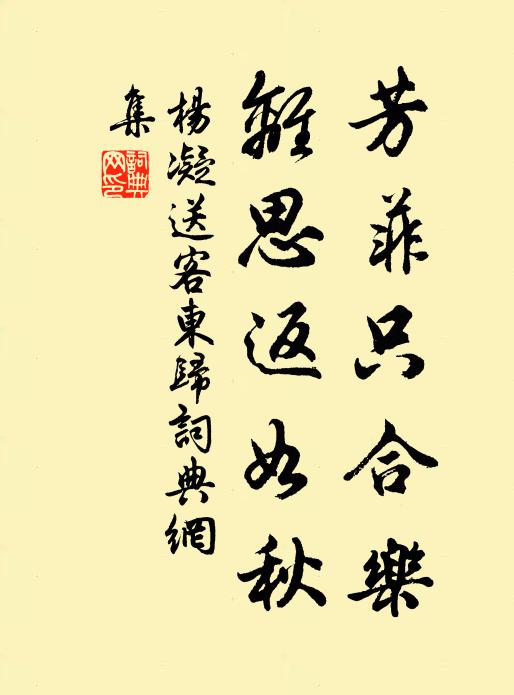 芳菲只合樂
離思返如秋
楊凝送客東歸詞典網
集
詞典网印